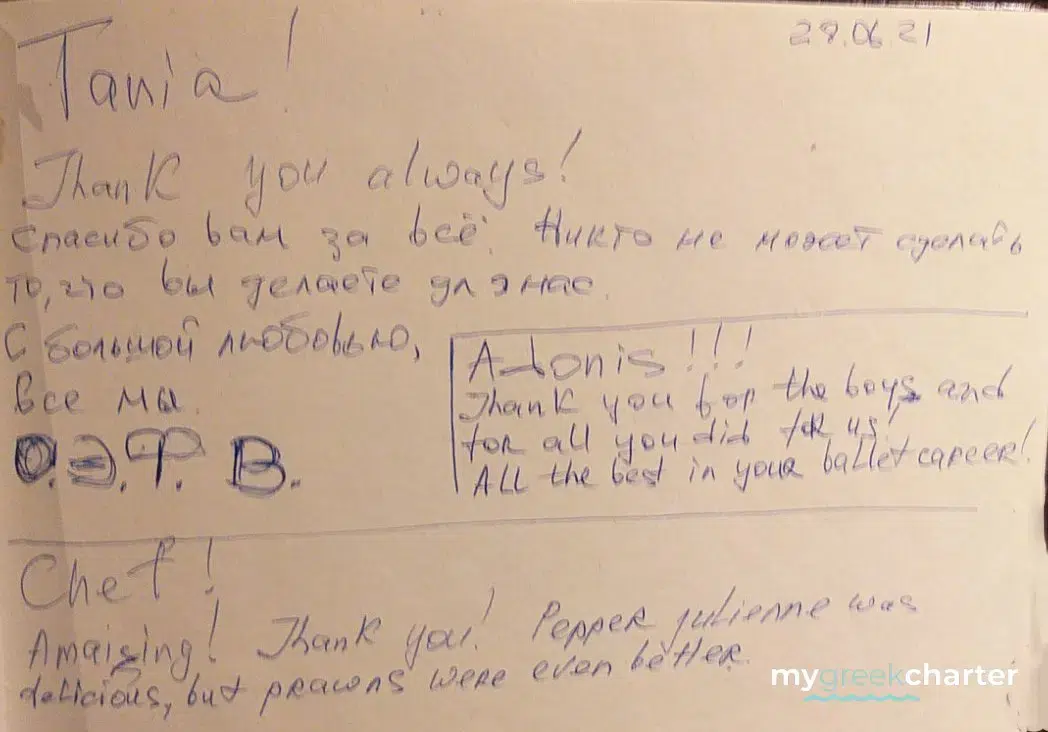 28.06.21
Tania!
Thank you always!
Спасибо вам за всё. Никто не может сделать
то, что вы делаете для нас.
С большой любовью,
все мы.
О.Э.Т. В.
Adonis!!!
Thank you for the boys and
for all you did for us!
ALL the best in your ballet career!
Chef!
Amaizing! Thank you! Pepper julienne was
delicious, but prawns were even better.
mygreekcharter